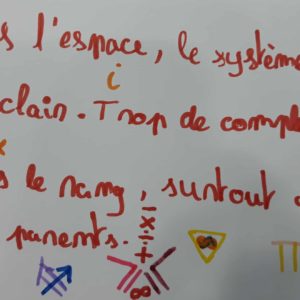 s l'espace, le système
i
clain. Trop de compl
x
s le rang, surtout
parents.
- x ÷ +
∞